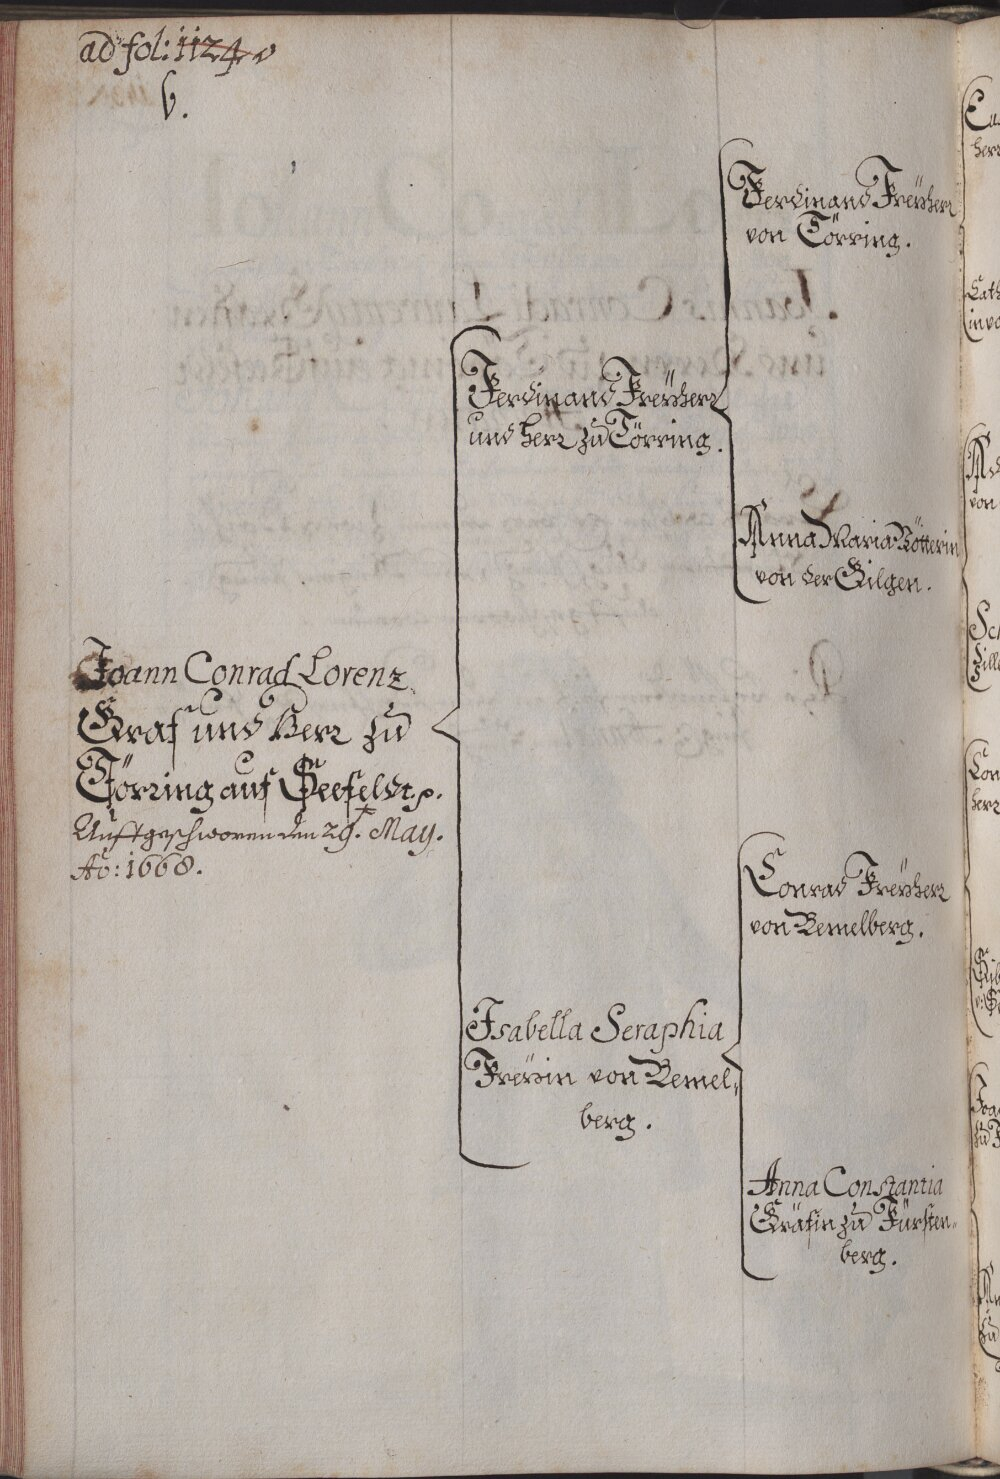 ad fol: 1124
6.
Ferdinand Freÿherr
von Törring.
Ferdinand Freÿherr
und Herr zu Törring.
Anna Maria Rötterin
von der Gilgen.
Joann Conrad Lorenz
Graf und Herr zu
Törring auf Seefeldt.p.
Auffgeschworen den 29.t May.
Aõ: 1668.
Conrad Freÿherr
von Bemelberg.
Isabella Seraphia
Freÿin von Bemel-
berg.
Anna Constantia
Gräfin zu Fürsten-
berg.